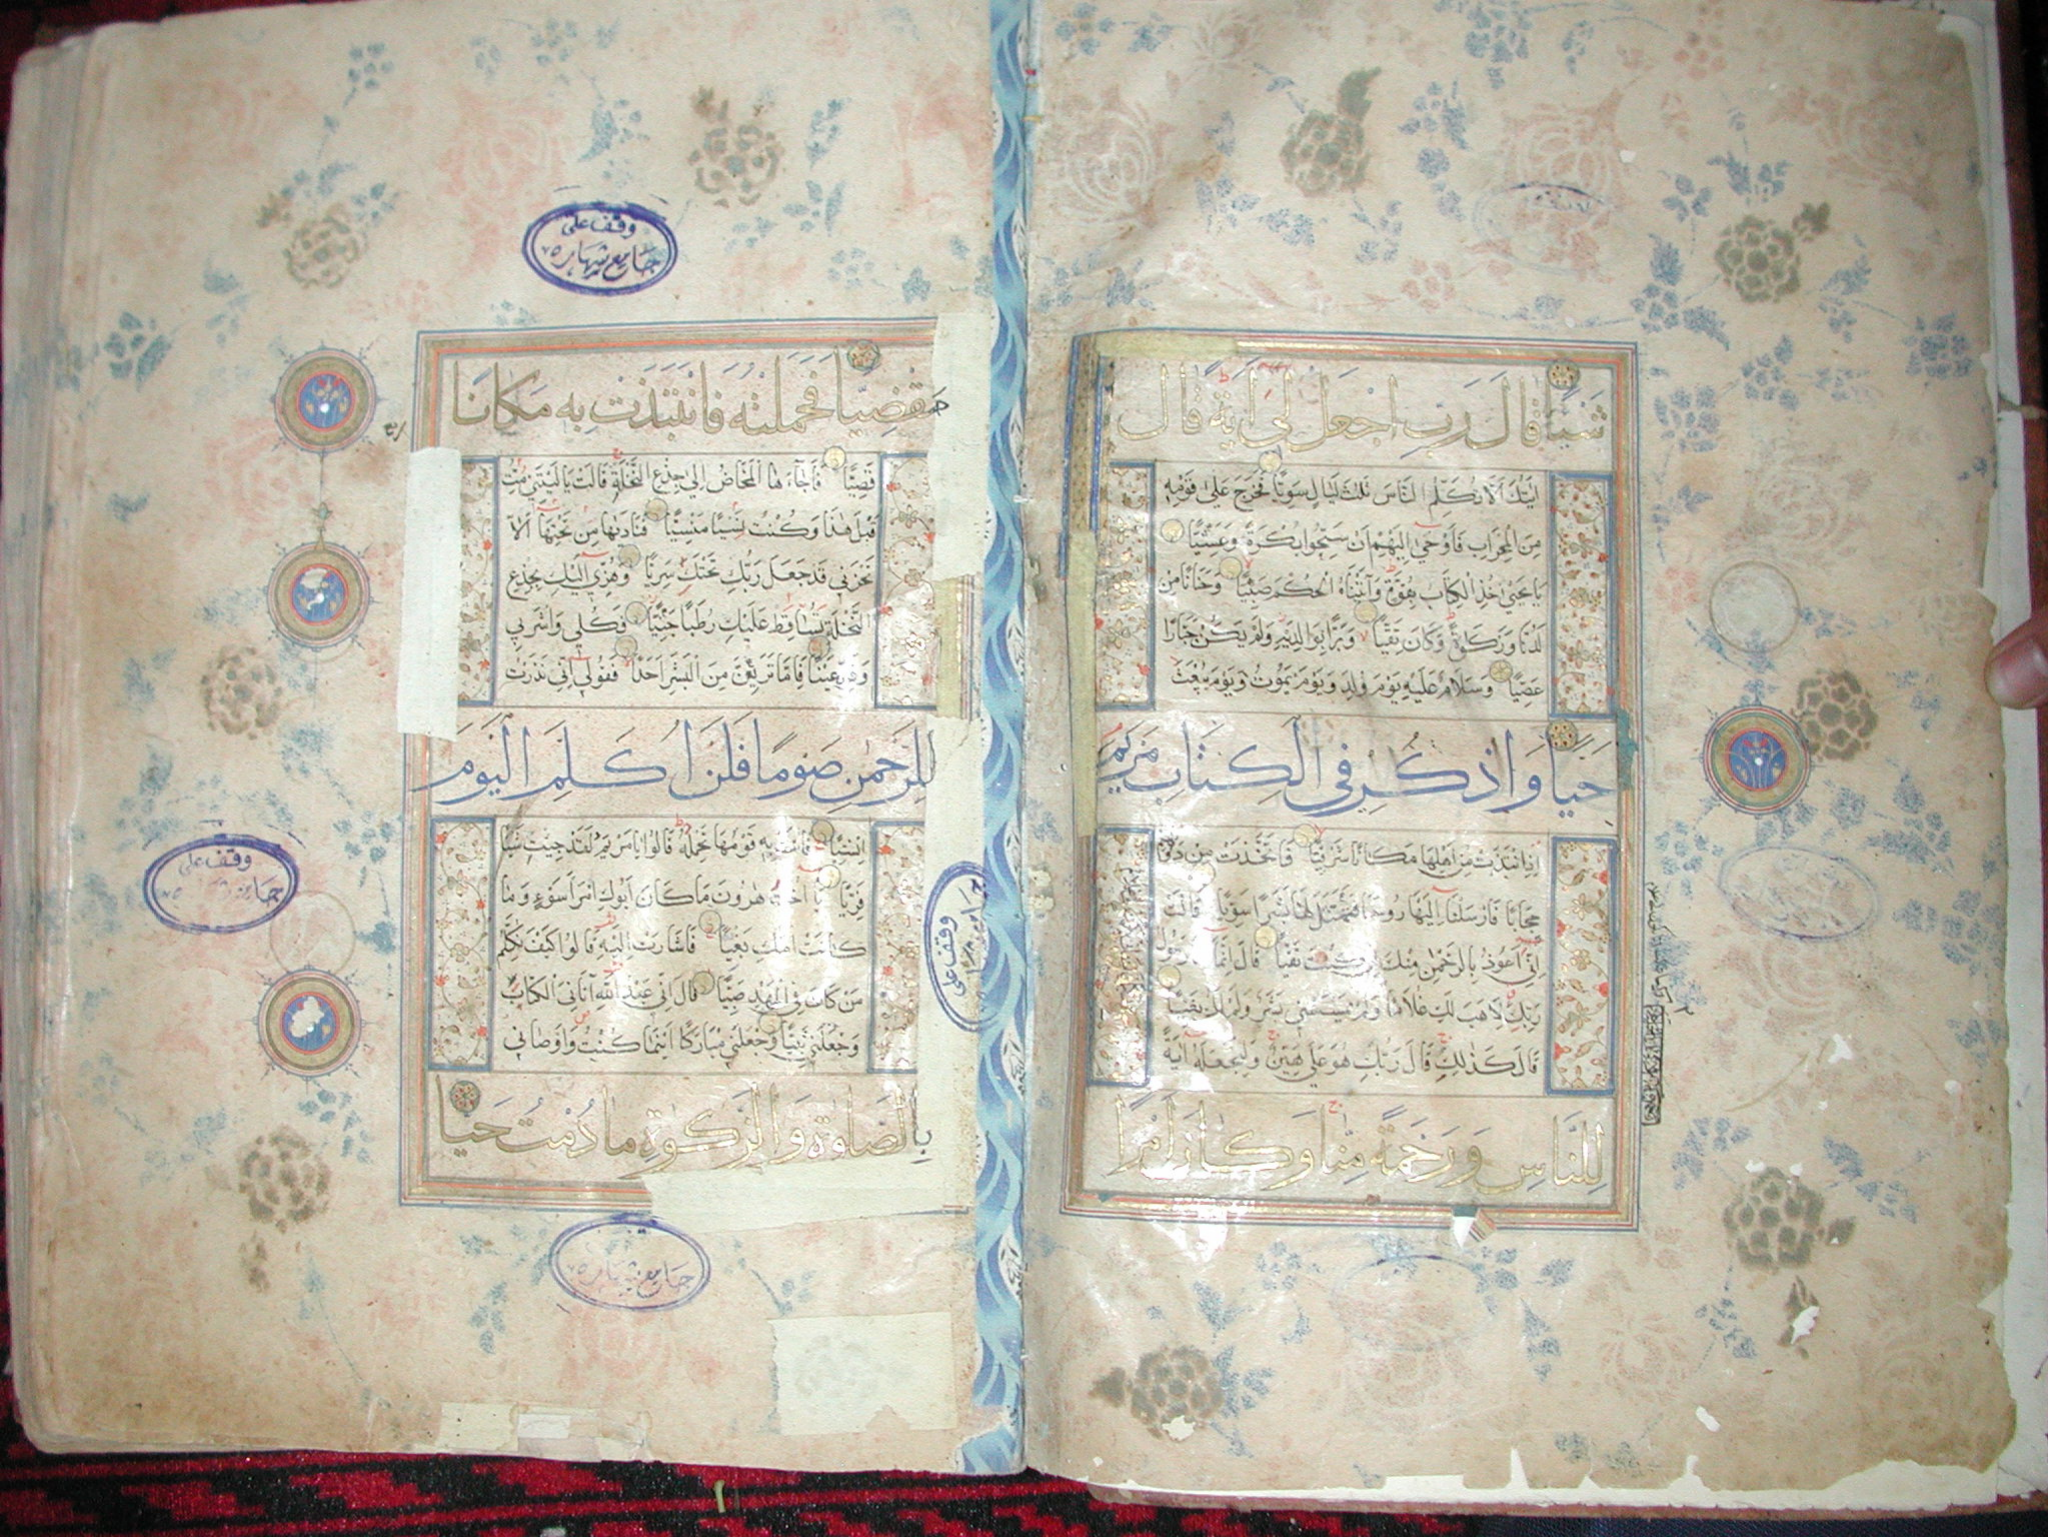 شيئا قال رب اجعل لي اية قال
ايتك الا تكلم الناس ثلث ليال سويا فخرج على قومه
من المحراب فاوحى اليهم ان سبحوا بكرة وعشيا
يا يحيى خذ الكتاب بقوة وآتيناه الحكم صبيا وحنانا من
لدنا وزكوة وكان تقيا وبرا بوالديه ولم يكن جبارا
عصيا وسلام عليه يوم ولد ويوم يموت ويوم يبعث
حيا واذكر في الكتاب مريم
اذ انتبذت من اهلها مكانا شرقيا فاتخذت من دونهم
حجابا فارسلنا اليها روحنا فتمثل لها بشرا سويا قالت
اني اعوذ بالرحمن منك ان كنت تقيا قال انما انا رسول
ربك لاهب لك غلاما ولم يمسسني بشر ولم اك بغيا
قال كذلك قال ربك هو علي هين ولنجعله اية
للناس ورحمة منا وكان امرا
مقضيا فحملته فانتبذت به مكانا
قصيا فاجاءها المخاض الى جذع النخلة قالت يا ليتني مت
قبل هذا وكنت نسيا منسيا فنادىها من تحتها الا
تحزني قد جعل ربك تحتك سريا وهزي اليك بجذع
النخلة تساقط عليك رطبا جنيا فكلي واشربي
وقري عينا فاما ترين من البشر احدا فقولي اني نذرت
للرحمن صوما فلن اكلم اليوم
انسيا فاتت به قومها تحمله قالوا يا مريم لقد جيت شيأ
فريا يا اخت هرون ما كان ابوك امرا سوء وما
كانت امك بغيا فاشارت اليه قالوا كيف نكلم
من كان في المهد صبيا قال اني عبد الله آتاني الكتاب
وجعلني نبيا وجعلني مباركا اينما كنت واوصاني
بالصلوة والزكوة ما دمت حيا
وقف على
جامع شهاره ٧٥
وقف على
جامع شهاره ٧٥
وقف على
جامع شهاره
جامع شهاره ٧٥